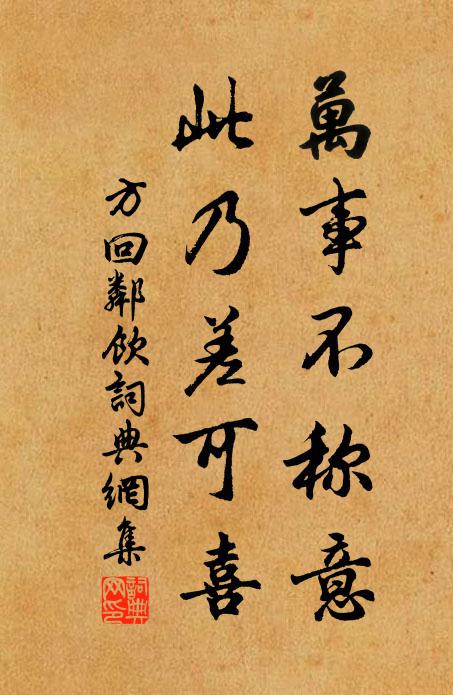 萬事不称意
此乃差可喜
方回鄰飲詞典網集
詞典網印